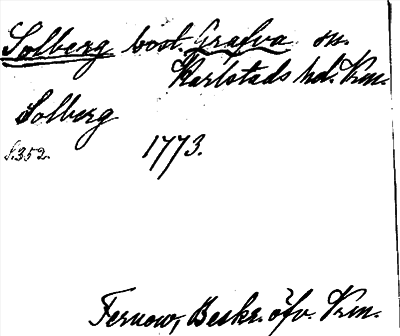 Solberg bost. Grafva sn.
Karlstads hd. Vrm.
Solberg
S.352. 1773.
Fernow, Beskr. öfv. Vrm.